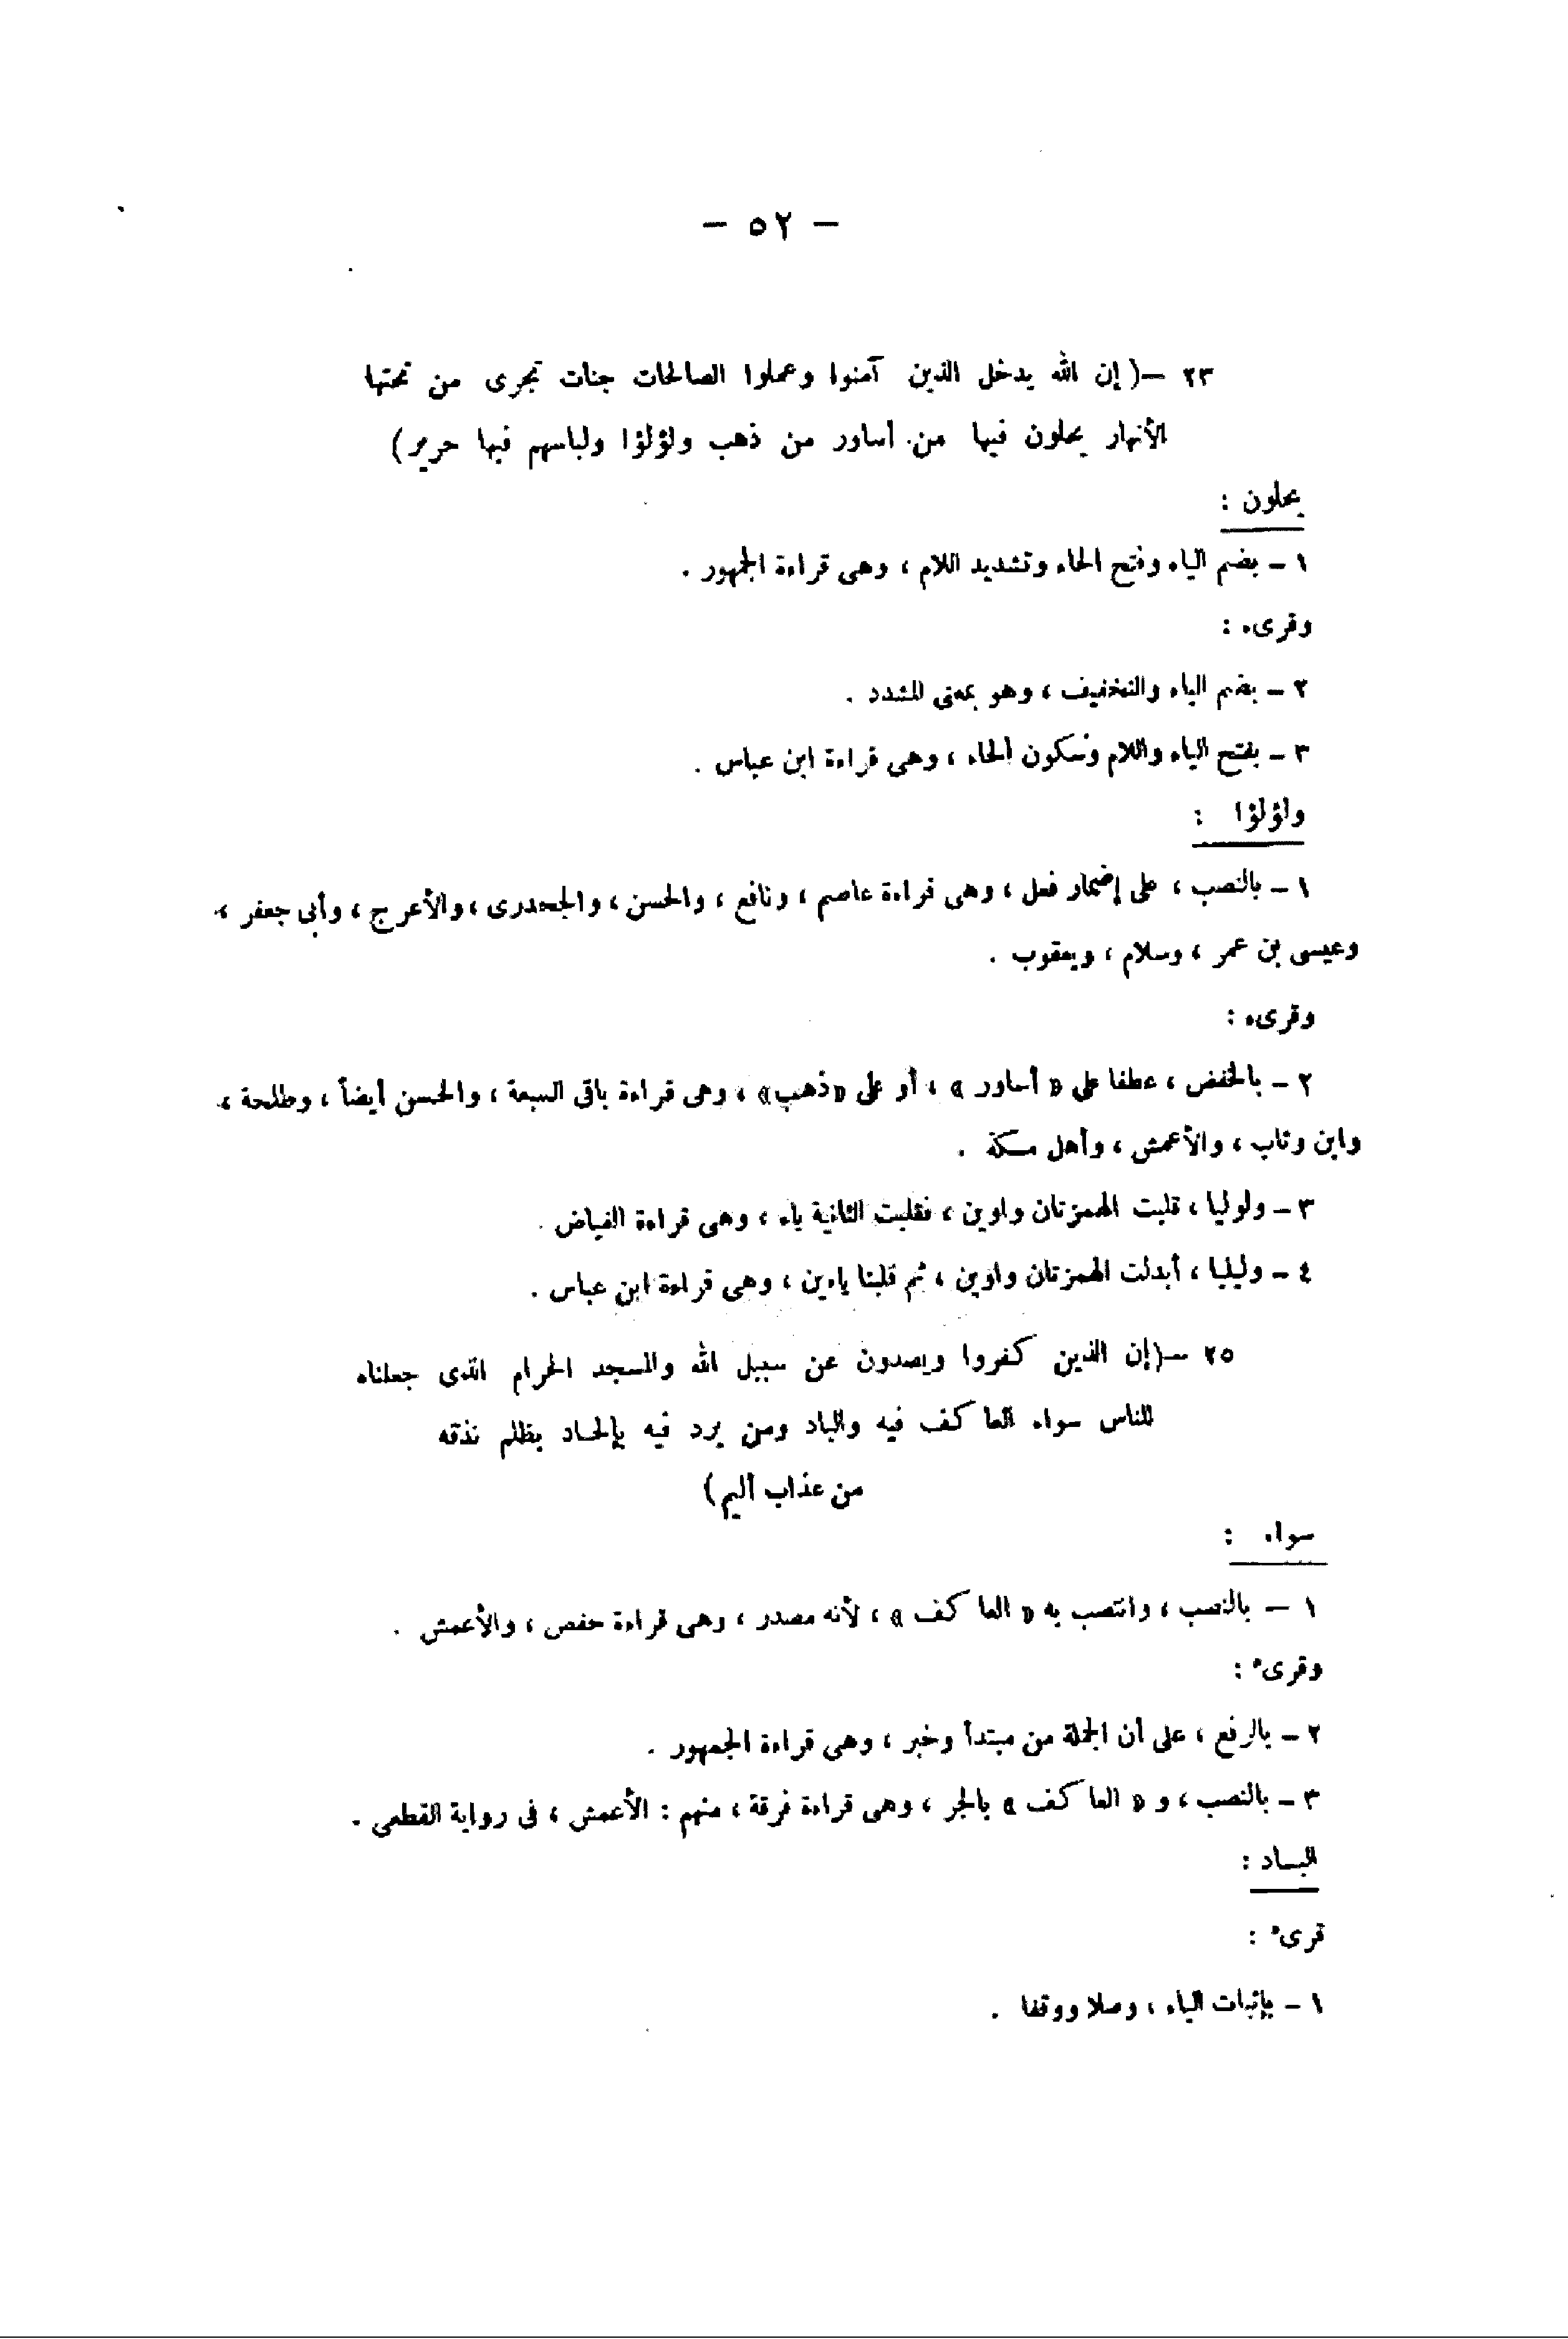 — ٥٢ —
٢٣ — ( إن الله يدخل الذين آمنوا وعملوا الصالحات جنات تجرى من تحتها
الأنهار يحلون فيها من أساور من ذهب ولؤلؤا ولباسهم فيها حرير )
يحلون :
١ – بضم الياء وفتح الحاء وتشديد اللام ، وهى قراءة الجمهور .
وقرىء :
٢ – بضم الياء والتخفيف ، وهو بمعنى المشدد .
٣ – بفتح الياء واللام وسكون الحاء ، وهى قراءة ابن عباس .
ولؤلؤا :
١ – بالنصب ، على إضمار فعل ، وهى قراءة عاصم ، ونافع ، والحسن ، والجحدرى ، والأعرج ، وأبى جعفر ،
وعيسى بن عمر ، وسلام ، ويعقوب .
وقرىء :
٢ – بالخفض ، عطفا على « أساور » ، أو على « ذهب » ، وهى قراءة باقى السبعة ، والحسن أيضاً ، وطلحة ،
وابن وثاب ، والأعمش ، وأهل مكة .
٣ – ولوليا ، قلبت الهمزتان واوين ، فقلبت الثانية ياء ، وهى قراءة الفياض .
٤ – وليليا ، أبدلت الهمزتان واوين ، ثم قلبتا ياءين ، وهى قراءة ابن عباس .
٢٥ — ( إن الذين كفروا ويصدون عن سبيل الله والمسجد الحرام الذى جعلناه
للناس سواء العاكف فيه والباد ومن يرد فيه بإلحاد بظلم نذقه
من عذاب أليم )
سواء :
١ — بالنصب ، وانتصب به « العاكف » ، لأنه مصدر ، وهى قراءة حفص ، والأعمش .
وقرىء :
٢ – بالرفع ، على أن الجملة من مبتدأ وخبر ، وهى قراءة الجمهور .
٣ – بالنصب ، و « العاكف » بالجر ، وهى قراءة فرقة ، منهم : الأعمش ، فى رواية القطعى .
البـاد :
قرىء :
١ – بإثبات الياء ، وصلا ووقفا .